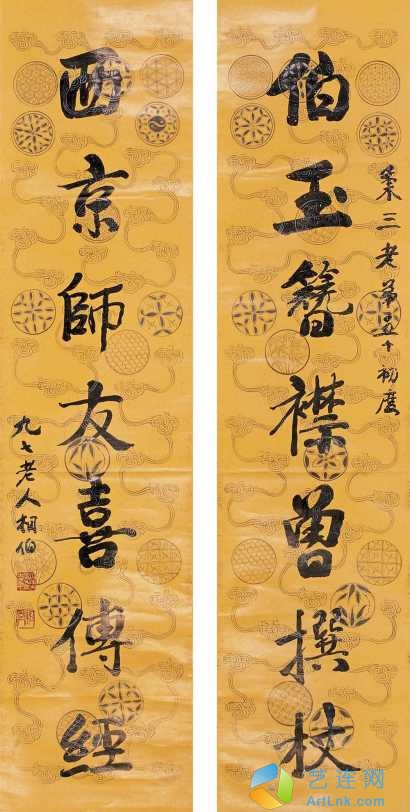 伯玉簪襟曾撰杖
秉三老弟五十初度
西京師友喜傳經
九七老人相伯
艺连网
ArtLink.com